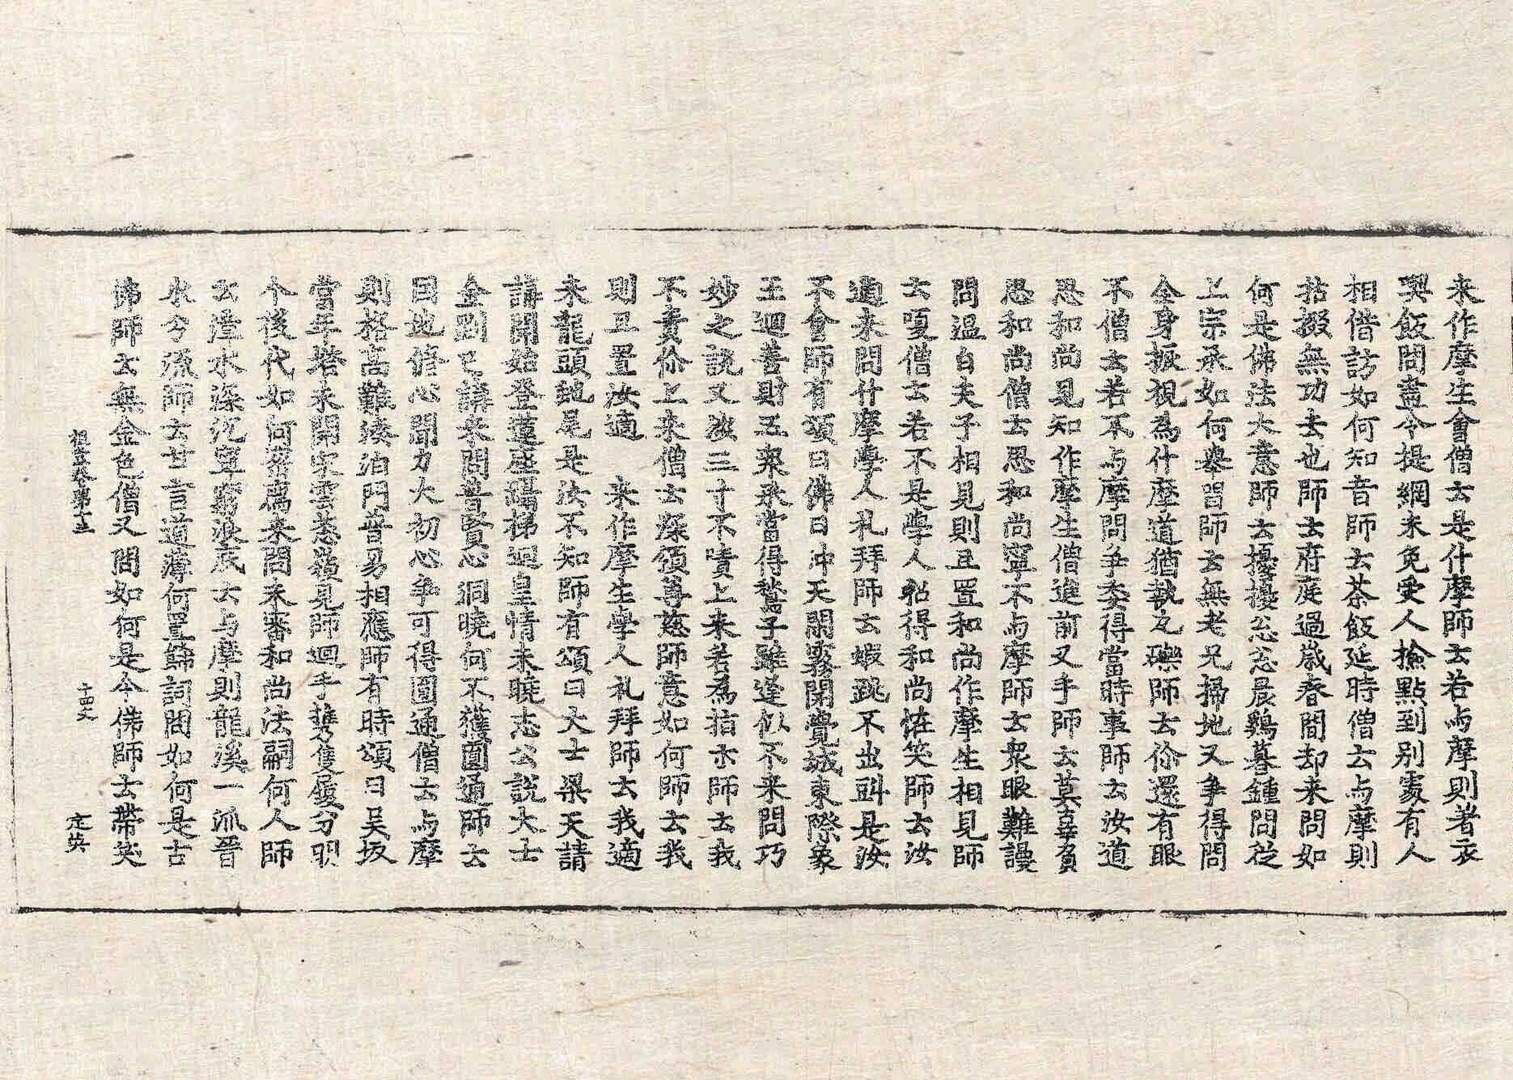 来作摩生會僧云是什摩師云若与摩則著衣
喫飯問盡令提綱来免受人撿點到別處有人
相借訪如何知音師云茶飯延時僧云与摩則
拈掇無功去也師云府庭過歲春間却来問如
何是佛法大意師云擾擾忩忩晨鷄暮鍾問從
上宗承如何舉唱師云無老兄掃地又爭得問
全身挀視為什摩道猶執瓦礫師云你還有眼
不僧云若不与摩問爭委得當時事師云汝道
思和尚見知作摩生僧進前叉手師云莫辜負
思和尚僧云思和尚寧不与摩師云衆眼難謾
問溫白夫子相見則且置和尚作摩生相見師
云嗄僧云若不是學人 得和尚恠笑師云汝
適来問什摩學人礼拜師云蝦跳不出㪷是汝
不會師有頌曰佛日冲天開霧開覺城東際象
王迴善財五衆承當得鶖子雖逢似不来問巧
妙之說又滯三寸不嘖上来若為指示師云我
不責你上来僧云深領尊慈師意如何師云我
則且置汝適 来作摩生學人礼拜師云我適
来龍頭虵尾是汝不知師有頌曰大士梁天請
講開始登蓮座躡梯迴皇情未曉志公說大士
金剛已講来問普賢心洞曉何不獲圓通師云
因地修心聞力大初心爭可得圓通僧云与摩
則格髙難湊泊門普易相應師有時頌曰吴坂
當年塔未開宋雲葱嶺見師迴手携隻履分明
个後代如何 来問未審和尚法嗣何人師
云漳水深沉寧 浪底云与摩則龍溪一派晉
水今流師云廿言道薄何置歸詞問如何是古
佛師云無金色僧又問如何是今佛師云帶笑
祖堂卷第十三
十四丈
定英